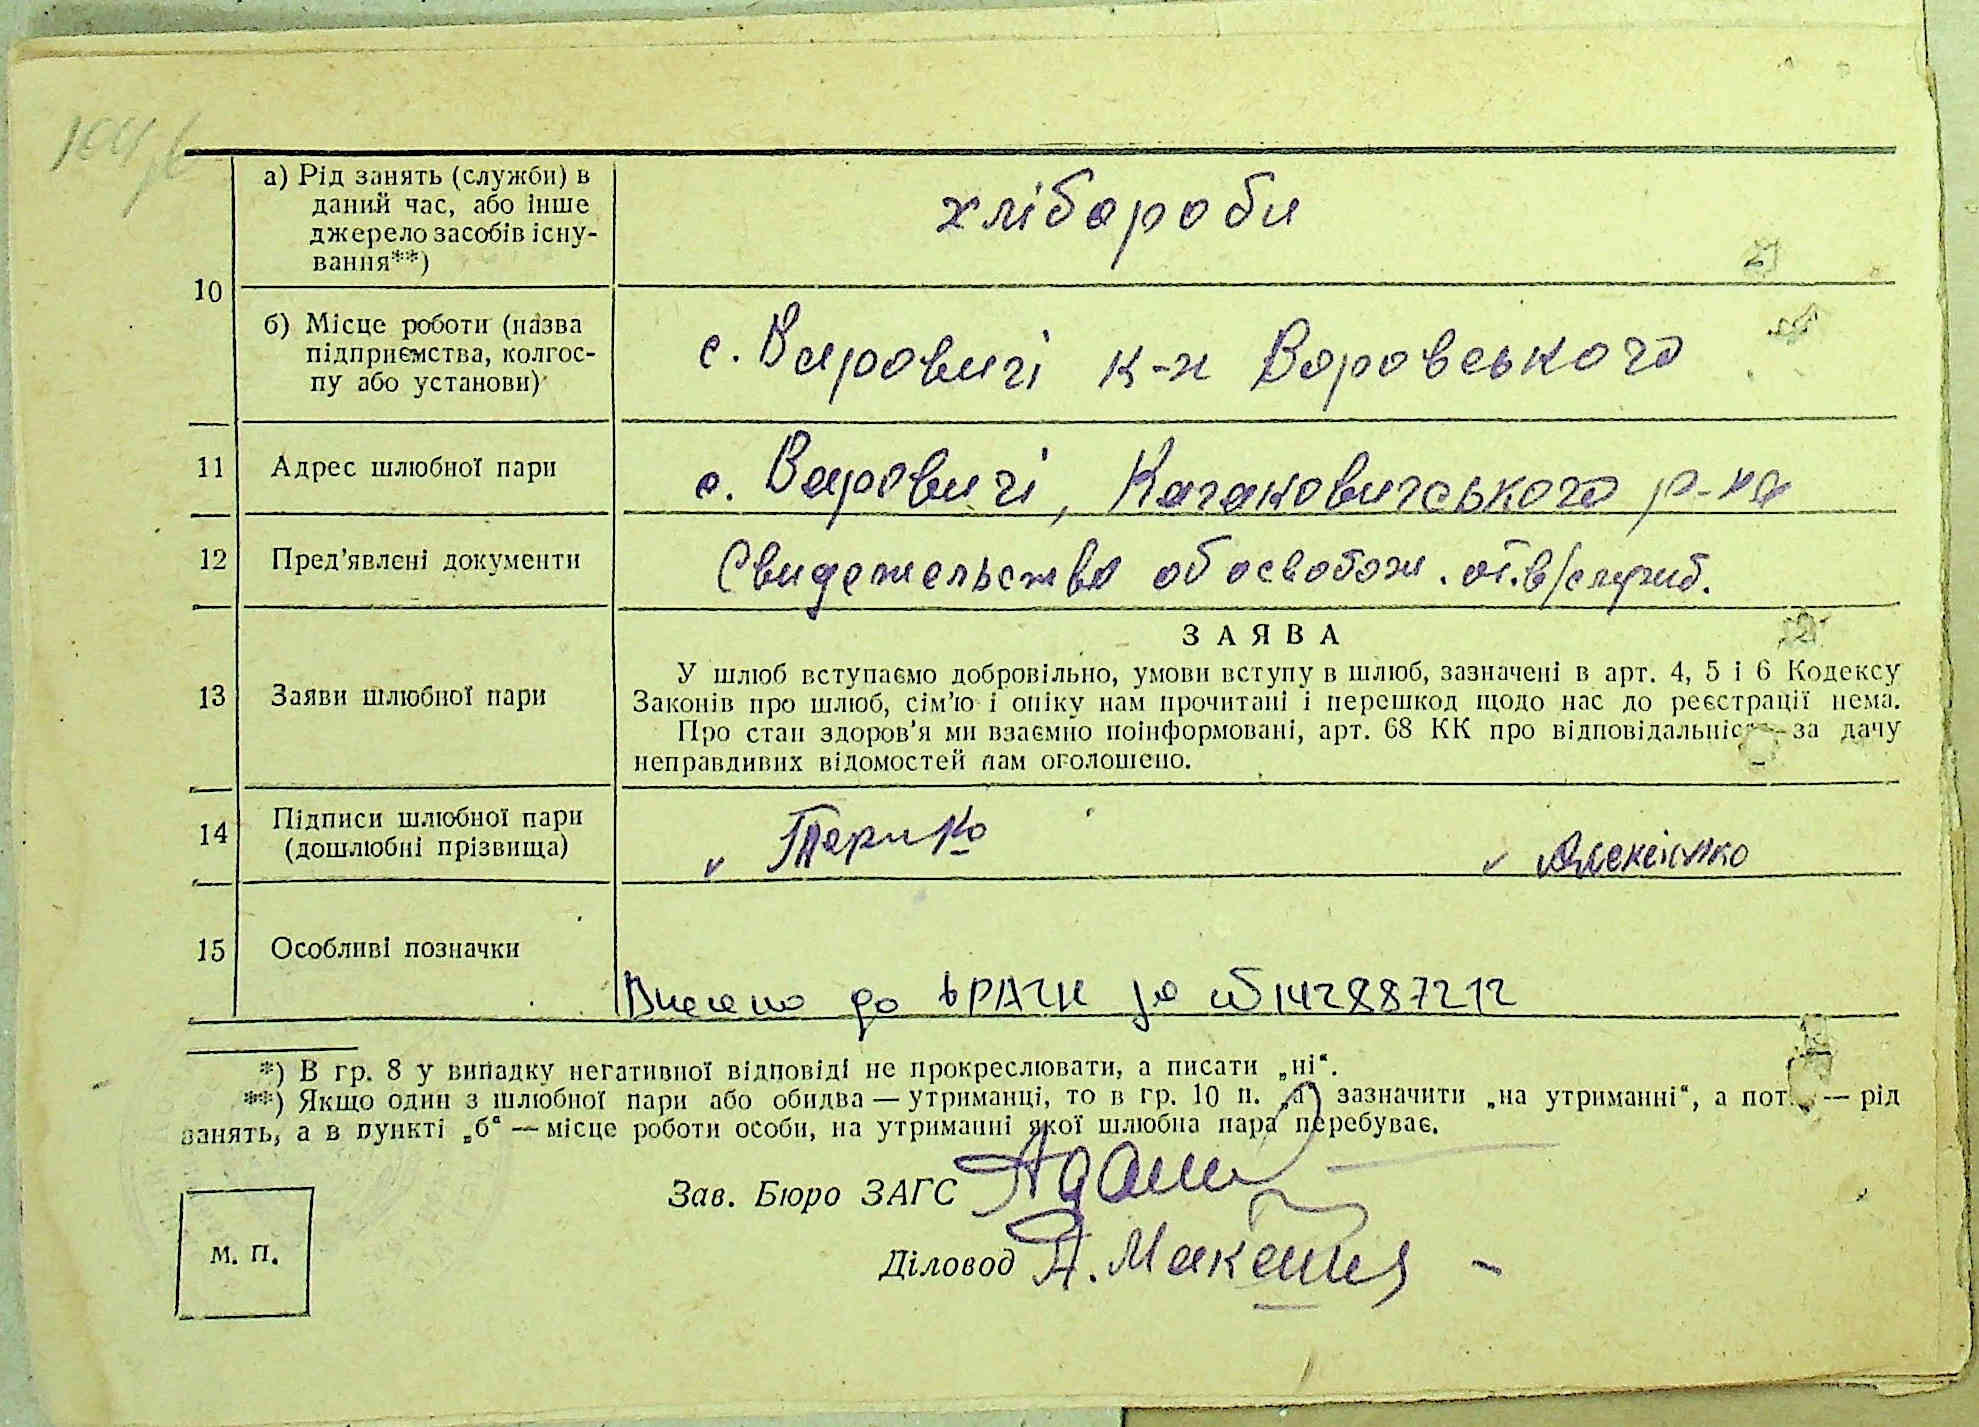 10
а) Рід занять (служби) в
даний час, або інше
джерело засобів існу-
вання**)
хлібароби
б) Місце роботи (назва
підприємства, колгос-
пу або установи)
с. Варовичі к-п Воровського
11
Адрес шлюбної пари
с. Варовичі, Кагановичського р-на
12
Пред'явлені документи
Свидетельство об освобож. от в/служб.
13
Заяви шлюбної пари
ЗАЯВА
У шлюб вступаємо добровільно, умови вступу в шлюб, зазначені в арт. 4, 5 і 6 Кодексу
Законів про шлюб, сім'ю і опіку нам прочитані і перешкод щодо нас до реєстрації нема.
Про стан здоров'я ми взаємно поінформовані, арт. 68 КК про відповідальність за дачу
неправдивих відомостей нам оголошено.
14
Підписи шлюбної пари
(дошлюбні прізвища)
15
Особливі позначки
Внесено до ДРАЦС за № 142887212
*) В гр. 8 у випадку негативної відповіді не прокреслювати, а писати „ні“.
**) Якщо один з шлюбної пари або обидва — утриманці, то в гр. 10 п. „а“ зазначити „на утриманні“, а потім — рід
занять, а в пункті „б“ — місце роботи особи, на утриманні якої шлюбна пара перебуває.
Зав. Бюро ЗАГС
Діловод
м. п.